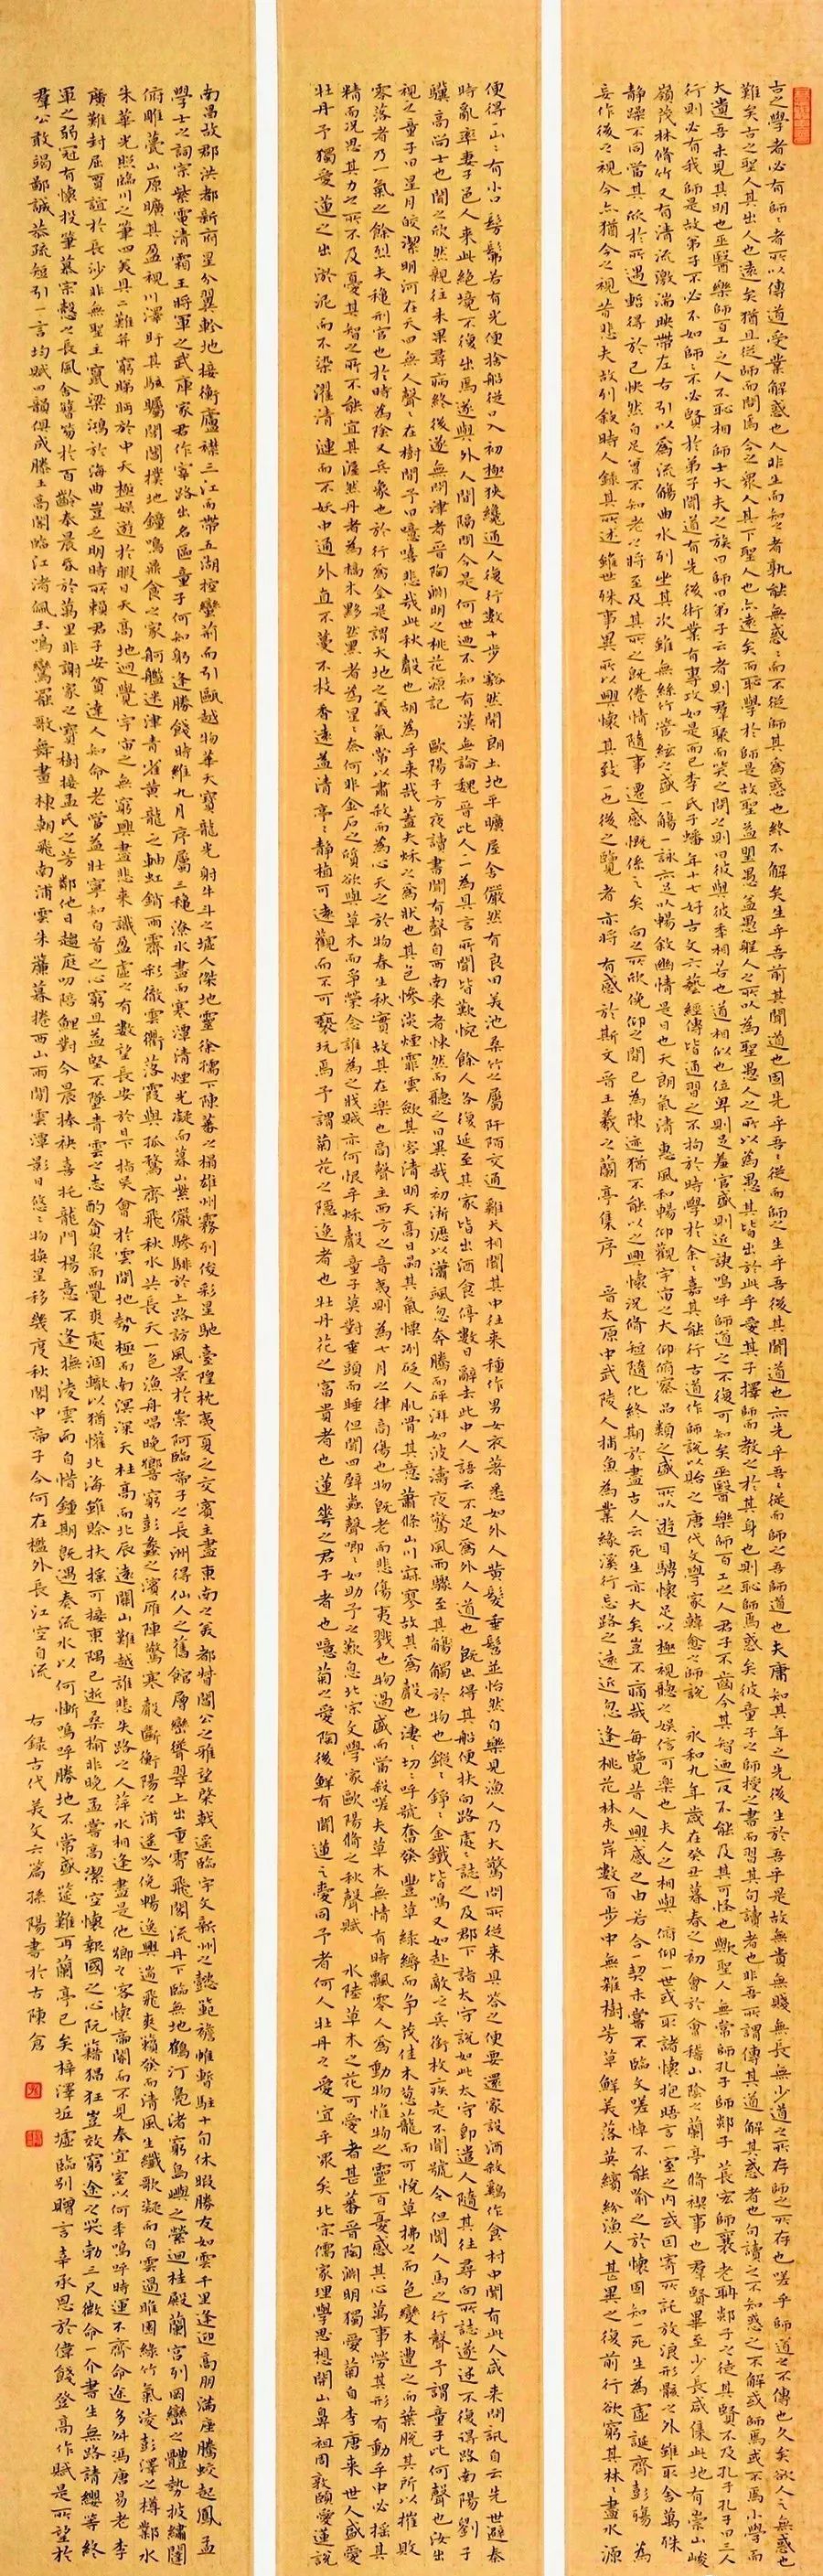 古之學者必有師〻者所以傳道受業解惑也人非生而知之者孰能無惑〻而不從師其為惑也終不解矣生乎吾前其聞道也固先乎吾〻從而師之生乎吾後其聞道也亦先乎吾〻從而師之吾師道也夫庸知其年之先後生於吾乎是故無貴無賤無長無少道之所存師之所存也嗟乎師道之不傳也久矣欲人之無惑也
難矣古之聖人其出人也遠矣猶且從師而問焉今之眾人其下聖人也亦遠矣而恥學於師是故聖益聖愚益愚聖人之所以為聖愚人之所以為愚其皆出於此乎愛其子擇師而教之於其身也則恥師焉惑矣彼童子之師授之書而習其句讀者也非吾所謂傳其道解其惑者也句讀之不知惑之不解或師焉或不焉小學而
大遺吾未見其明也巫醫樂師百工之人不恥相師士大夫之族曰師曰弟子云者則羣聚而笑之問之則曰彼與彼年相若也道相似也位卑則足羞官盛則近諛嗚呼師道之不復可知矣巫醫樂師百工之人君子不齒今其智迺反不能及其可怪也歟聖人無常師孔子師郯子萇宏師襄老聃郯子之徒其賢不及孔子孔子曰三人
行則必有我師是故弟子不必不如師〻不必賢於弟子聞道有先後術業有專攻如是而已李氏子蟠年十七好古文六藝經傳皆通習之不拘於時學於余〻嘉其能行古道作師說以貽之唐代文學家韓愈之師說　永和九年歲在癸丑暮春之初會於會稽山陰之蘭亭脩禊事也羣賢畢至少長咸集此地有崇山峻
嶺茂林脩竹又有清流激湍映帶左右引以為流觴曲水列坐其次雖無絲竹管絃之盛一觴一詠亦足以暢敘幽情是日也天朗氣清惠風和暢仰觀宇宙之大俯察品類之盛所以遊目騁懷足以極視聽之娛信可樂也夫人之相與俯仰一世或取諸懷抱晤言一室之內或因寄所託放浪形骸之外雖取舍萬殊
靜躁不同當其欣於所遇暫得於己快然自足曾不知老之將至及其所之既倦情隨事遷感慨係之矣向之所欣俛仰之間已為陳迹猶不能以之興懷況脩短隨化終期於盡古人云死生亦大矣豈不痛哉每覽昔人興感之由若合一契未嘗不臨文嗟悼不能喻之於懷固知一死生為虛誕齊彭殤為
妄作後之視今亦猶今之視昔悲夫故列敘時人錄其所述雖世殊事異所以興懷其致一也後之覽者亦將有感於斯文晋王羲之蘭亭集序　晋太原中武陵人捕魚為業緣溪行忘路之遠近忽逢桃花林夾岸數百步中無雜樹芳草鮮美落英繽紛漁人甚異之復前行欲窮其林〻盡水源
便得一山〻有小口髣髴若有光便捨船從口入初極狹纔通人復行數十步豁然開朗土地平曠屋舍儼然有良田美池桑竹之屬阡陌交通雞犬相聞其中往來種作男女衣著悉如外人黃髮垂髫並怡然自樂見漁人乃大驚問所從來具答之便要還家設酒殺雞作食村中聞有此人咸來問訊自云先世避秦
時亂率妻子邑人來此絕境不復出焉遂與外人間隔問今是何世迺不知有漢無論魏晉此人一一為具言所聞皆歎惋餘人各復延至其家皆出酒食停數日辭去此中人語云不足為外人道也既出得其船便扶向路處〻誌之及郡下詣太守說如此太守即遣人隨其往尋向所誌遂迷不復得路南陽劉子
驥高尚士也聞之欣然親往未果尋病終後遂無問津者晋陶淵明之桃花源記　歐陽子方夜讀書聞有聲自西南來者悚然而聽之曰異哉初淅瀝以瀟颯忽奔騰而砰湃如波濤夜驚風雨驟至其觸於物也鏦〻錚〻金鐵皆鳴又如赴敵之兵銜枚疾走不聞號令但聞人馬之行聲予謂童子此何聲也汝出
視之童子曰星月皎潔明河在天四無人聲〻在樹間予曰噫嘻悲哉此秋聲也胡為乎來哉蓋夫秋之為狀也其色慘淡煙霏雲斂其容清明天高日晶其氣慄冽砭人肌骨其意蕭條山川寂寥故其為聲也淒〻切〻呼號奮發豐草綠縟而爭茂佳木葱蘢而可悅草拂之而色變木遭之而葉脫其所以摧敗
零落者乃一氣之餘烈夫秋刑官也於時為陰又兵象也於行為金是謂天地之義氣常以肅殺而為心天之於物春生秋實故其在樂也商聲主西方之音夷則為七月之律商傷也物既老而悲傷夷戮也物過盛而當殺嗟夫草木無情有時飄零人為動物惟物之靈百憂感其心萬事勞其形有動乎中必搖其
精而況思其力之所不及憂其智之所不能宜其渥然丹者為槁木黟然黑者為星〻奈何非金石之質欲與草木而爭榮念誰為之戕賊亦何恨乎秋聲童子莫對垂頭而睡但聞四壁蟲聲唧〻如助予之歎息北宗文學家歐陽脩之秋聲賦　水陸草木之花可愛者甚蕃晋陶淵明獨愛菊自李唐來世人盛愛
牡丹予獨愛蓮之出淤泥而不染濯清漣而不妖中通外直不蔓不枝香遠益清亭〻靜植可遠觀而不可褻玩焉予謂菊花之隱逸者也牡丹花之富貴者也蓮花之君子者也噫菊之愛陶後鮮有聞蓮之愛同予者何人牡丹之愛宜乎眾矣北宗儒家理學思想開山鼻祖周敦頤愛蓮說
南昌故郡洪都新府星分翼軫地接衡廬襟三江而帶五湖控蠻荊而引甌越物華天寶龍光射牛斗之墟人傑地靈徐孺下陳蕃之榻雄州霧列俊彩星馳臺隍枕夷夏之交賓主盡東南之美都督閻公之雅望棨戟遥臨宇文新州之懿範襜帷暫駐十旬休暇勝友如雲千里逢迎高朋滿座騰蛟起鳳孟
學士之詞宗紫電清霜王將軍之武庫家君作宰路出名區童子何知躬逢勝餞時維九月序屬三秋潦水盡而寒潭清煙光凝而暮山紫儼驂騑於上路訪風景於崇阿臨帝子之長洲得仙人之舊館層巒聳翠上出重霄飛閣流丹下臨無地鶴汀鳧渚窮島嶼之縈迴桂殿蘭宮列岡巒之體勢披繡闥
俯雕甍山原曠其盈視川澤盱其駭矚閭閻撲地鐘鳴鼎食之家舸艦迷津青雀黃龍之舳虹銷雨霽彩徹雲衢落霞與孤鶩齊飛秋水共長天一色漁舟唱晚響窮彭蠡之濱雁陣驚寒聲斷衡陽之浦遥吟俛暢逸興遄飛爽籟發而清風生纖歌凝而白雲遏睢園綠竹氣凌彭澤之樽鄴水
朱華光照臨川之筆四美具二難并窮睇眄於中天極娛遊於暇日天高地迥覺宇宙之無窮興盡悲來識盈虛之有數望長安於日下指吳會於雲間地勢極而南溟深天柱高而北辰遠關山難越誰悲失路之人萍水相逢盡是他鄉之客懷帝閽而不見奉宣室以何年嗚呼時運不齊命途多舛馮唐易老李
廣難封屈賈誼於長沙非無聖主竄梁鴻於海曲豈乏明時所賴君子安貧達人知命老當益壯寧知白首之心窮且益堅不墜青雲之志酌貪泉而覺爽處涸轍以猶懽北海雖賒扶搖可接東隅已逝桑榆非晚孟嘗高潔空懷報國之心阮籍猖狂豈效窮途之哭勃三尺微命一介書生無路請纓等終
軍之弱冠有懷投筆慕宗愨之長風舍簪笏於百齡奉晨昏於萬里非謝家之寶樹接孟氏之芳鄰他日趨庭叨陪鯉對今晨捧袂喜托龍門楊意不逢撫凌雲而自惜鍾期既遇奏流水以何慚嗚呼勝地不常盛筵難再蘭亭已矣梓澤坵墟臨別贈言幸承恩於偉餞登高作賦是所望於
羣公敢竭鄙誠恭疏短引一言均賦四韻俱成滕王高閣臨江渚佩玉鳴鸞罷歌舞畫棟朝飛南浦雲朱簾暮捲西山雨閒雲潭影日悠〻物換星移幾度秋閣中帝子今何在檻外長江空自流　右錄古代美文六篇孫陽書於古陳倉